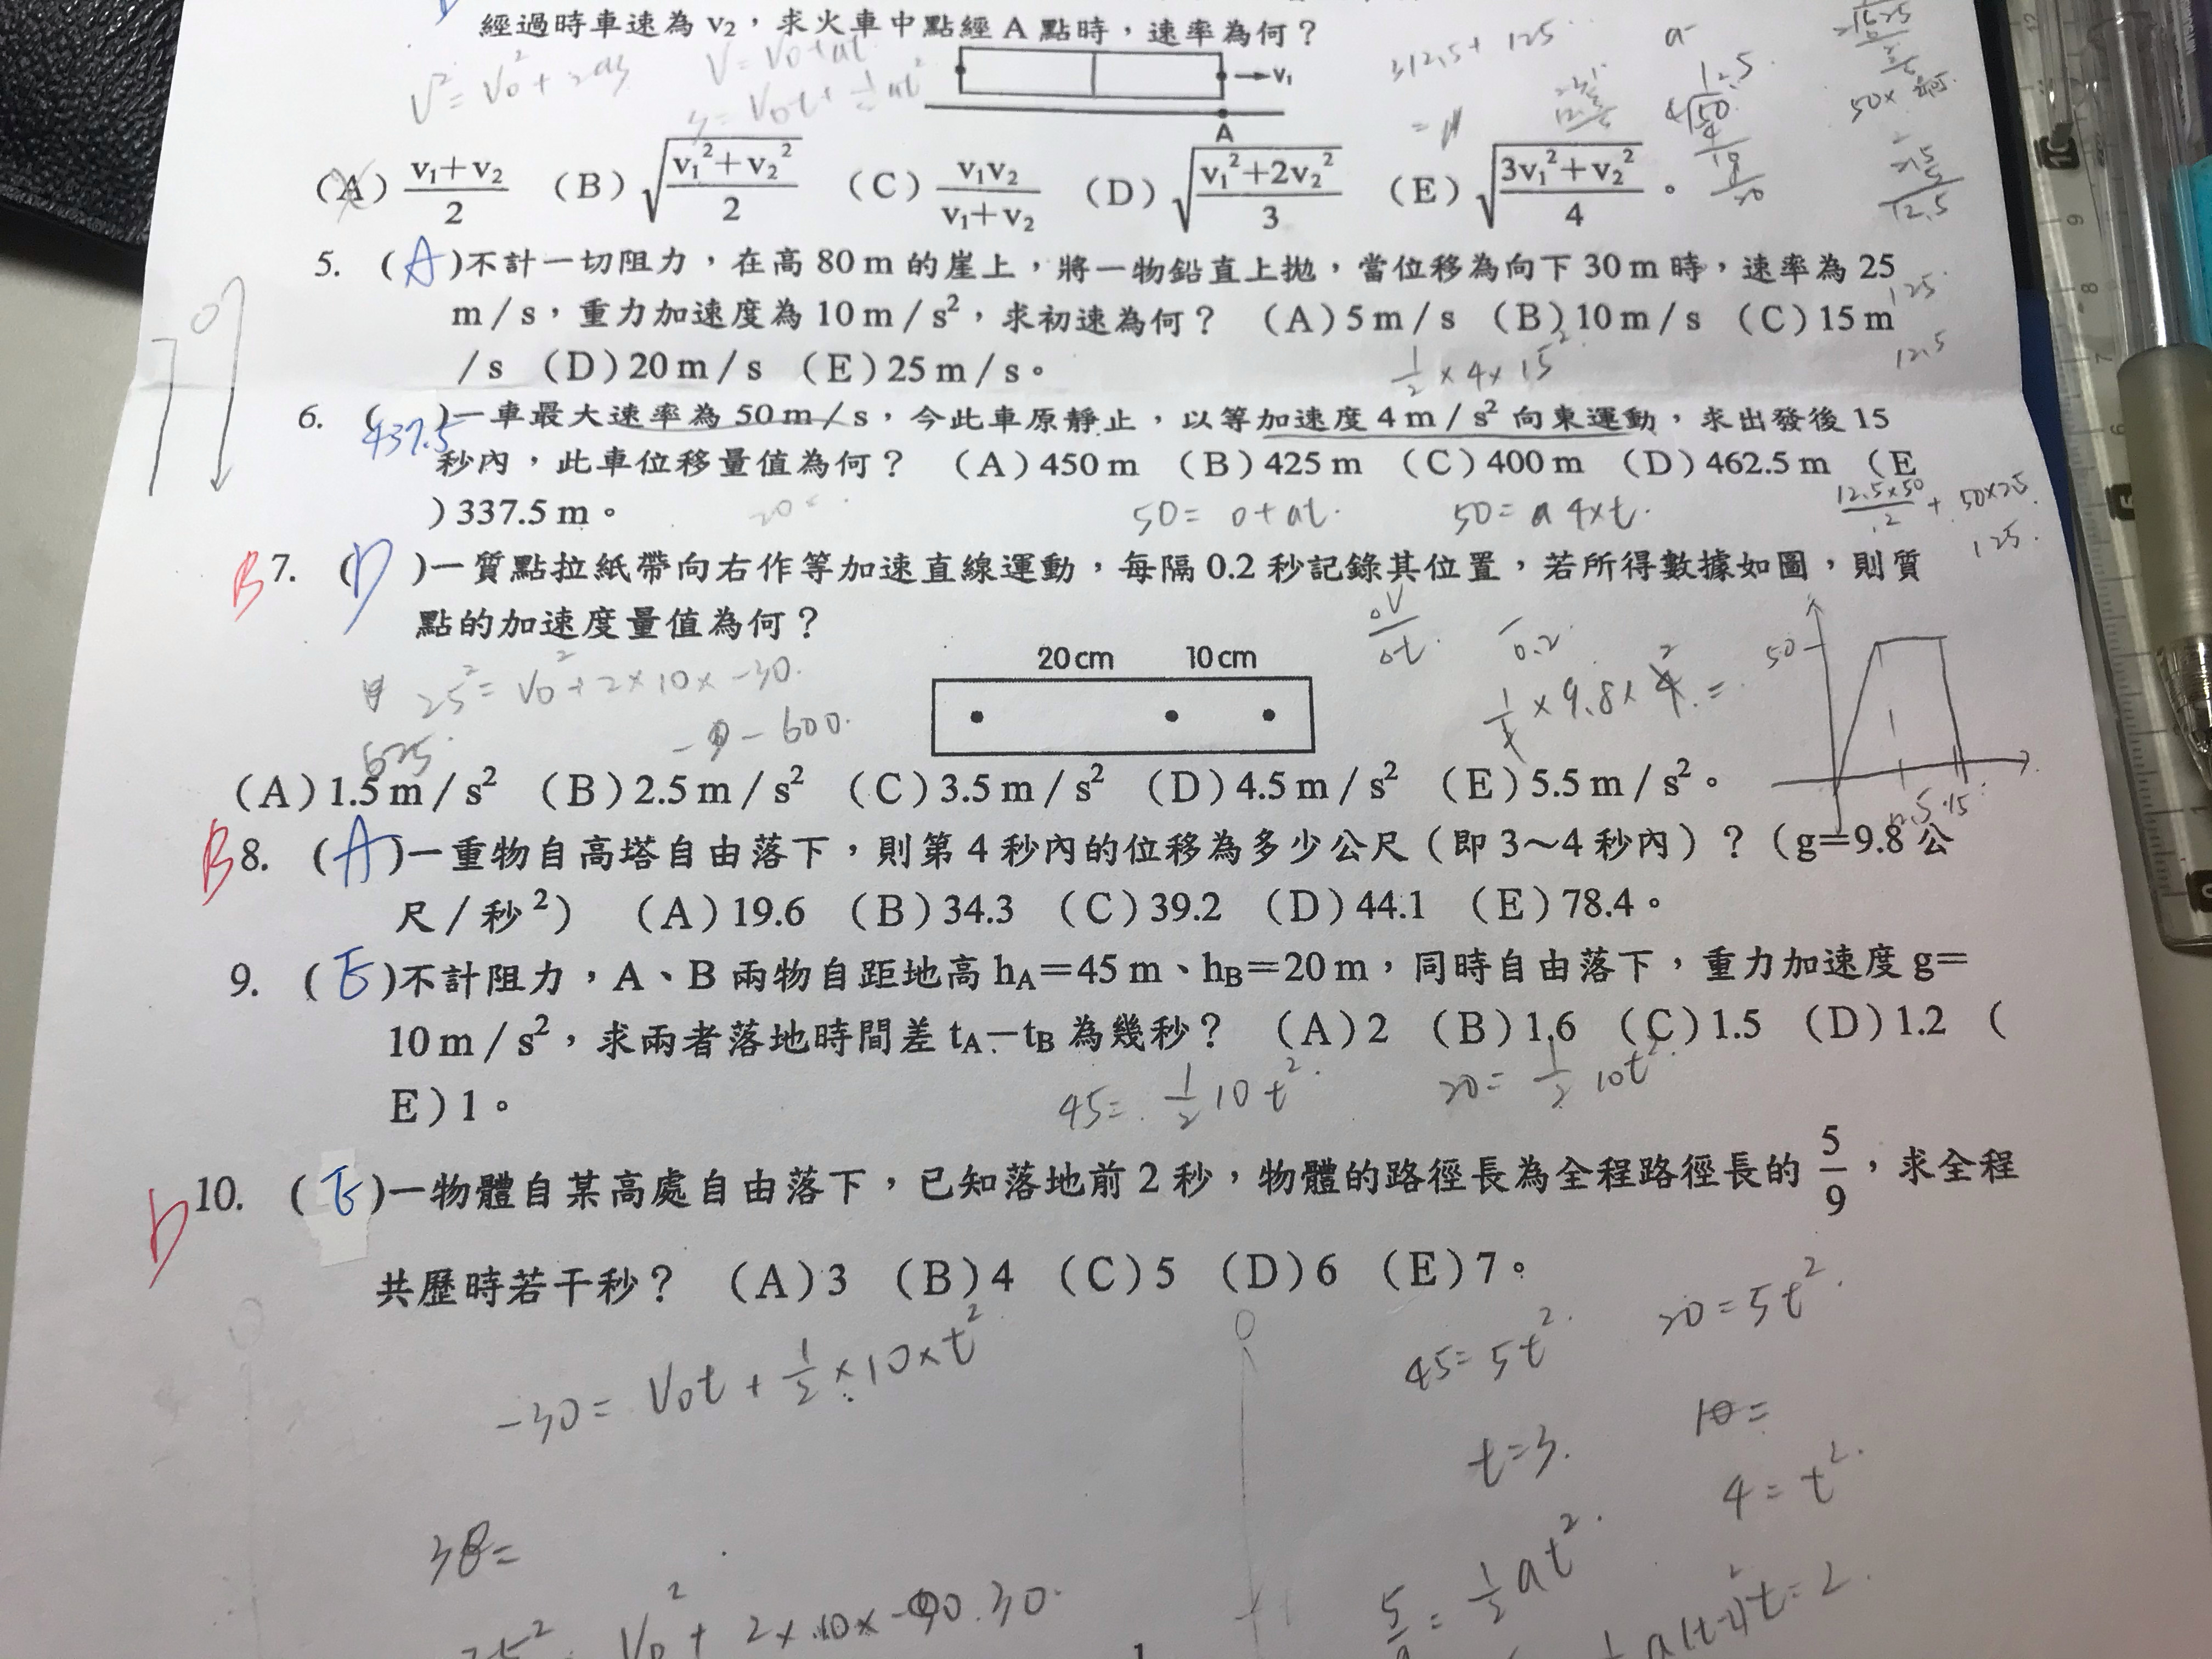 經過時車速為 v₂，求火車中點經 A 點時，速率為何？
V² = V₀² + 2as
V = V₀ + at
V₀t + ½at²
312.5 + 125
→v₁
A
(A) (v₁+v₂)/2 (B) √((v₁²+v₂²)/2) (C) v₁v₂/(v₁+v₂) (D) √((v₁²+2v₂²)/3) (E) √((3v₁²+v₂²)/4)。
12.5
4)50
12.5
5. (A)不計一切阻力，在高 80 m 的崖上，將一物鉛直上拋，當位移為向下 30 m 時，速率為 25
m／s，重力加速度為 10 m／s²，求初速為何？ (A) 5 m／s (B) 10 m／s (C) 15 m
／s (D) 20 m／s (E) 25 m／s。
125
12.5
½ × 4 × 15²
6. ( )一車最大速率為 50 m／s，今此車原靜止，以等加速度 4 m／s² 向東運動，求出發後 15
437.5
秒內，此車位移量值為何？ (A) 450 m (B) 425 m (C) 400 m (D) 462.5 m (E
) 337.5 m。
50 = 0 + at.
50 = a 4×t.
12.5×50/2 + 50×25
125.
B 7. (D)一質點拉紙帶向右作等加速直線運動，每隔 0.2 秒記錄其位置，若所得數據如圖，則質
點的加速度量值為何？
20 cm 10 cm
25² = V₀² + 2×10×-30.
625
- 600.
0.2
50
12.5 15
(A) 1.5 m／s² (B) 2.5 m／s² (C) 3.5 m／s² (D) 4.5 m／s² (E) 5.5 m／s²。
B 8. (A)一重物自高塔自由落下，則第 4 秒內的位移為多少公尺（即 3～4 秒內）？（g＝9.8 公
尺／秒²） (A) 19.6 (B) 34.3 (C) 39.2 (D) 44.1 (E) 78.4。
9. (E)不計阻力，A、B 兩物自距地高 hA＝45 m、hB＝20 m，同時自由落下，重力加速度 g＝
10 m／s²，求兩者落地時間差 tA－tB 為幾秒？ (A) 2 (B) 1.6 (C) 1.5 (D) 1.2 (
E) 1。
45 = ½10t².
20 = ½10t².
b 10. (E)一物體自某高處自由落下，已知落地前 2 秒，物體的路徑長為全程路徑長的 5/9，求全程
共歷時若干秒？ (A) 3 (B) 4 (C) 5 (D) 6 (E) 7。
-30 = V₀t + ½×10×t²
45 = 5t².
20 = 5t².
t = 3.
4 = t².
t = 2.
½at².